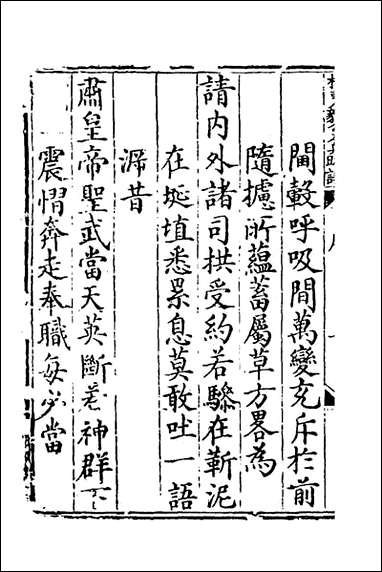 闥轂呼吸間萬變充斥於前
隨攄所蘊蓄屬草方畧為
請内外諸司拱受約若驂在靳泥
在埏埴悉累息莫敢吐一語
㴑昔
肅皇帝聖武當天英斷若神群下
震慴奔走奉職每必當